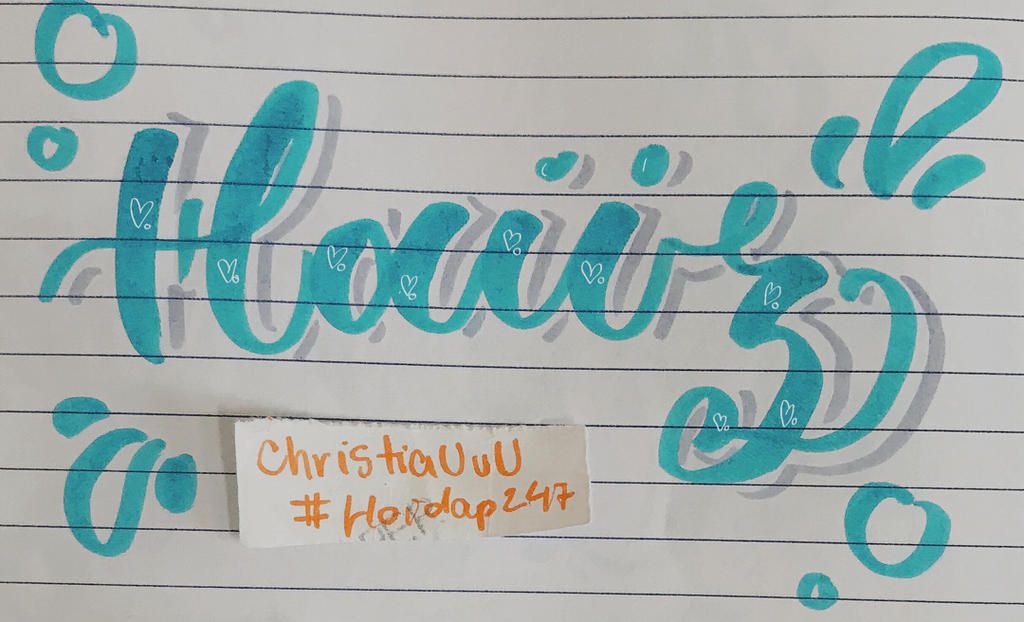 Haiiz
ChristiaUuU
#Hoidap247